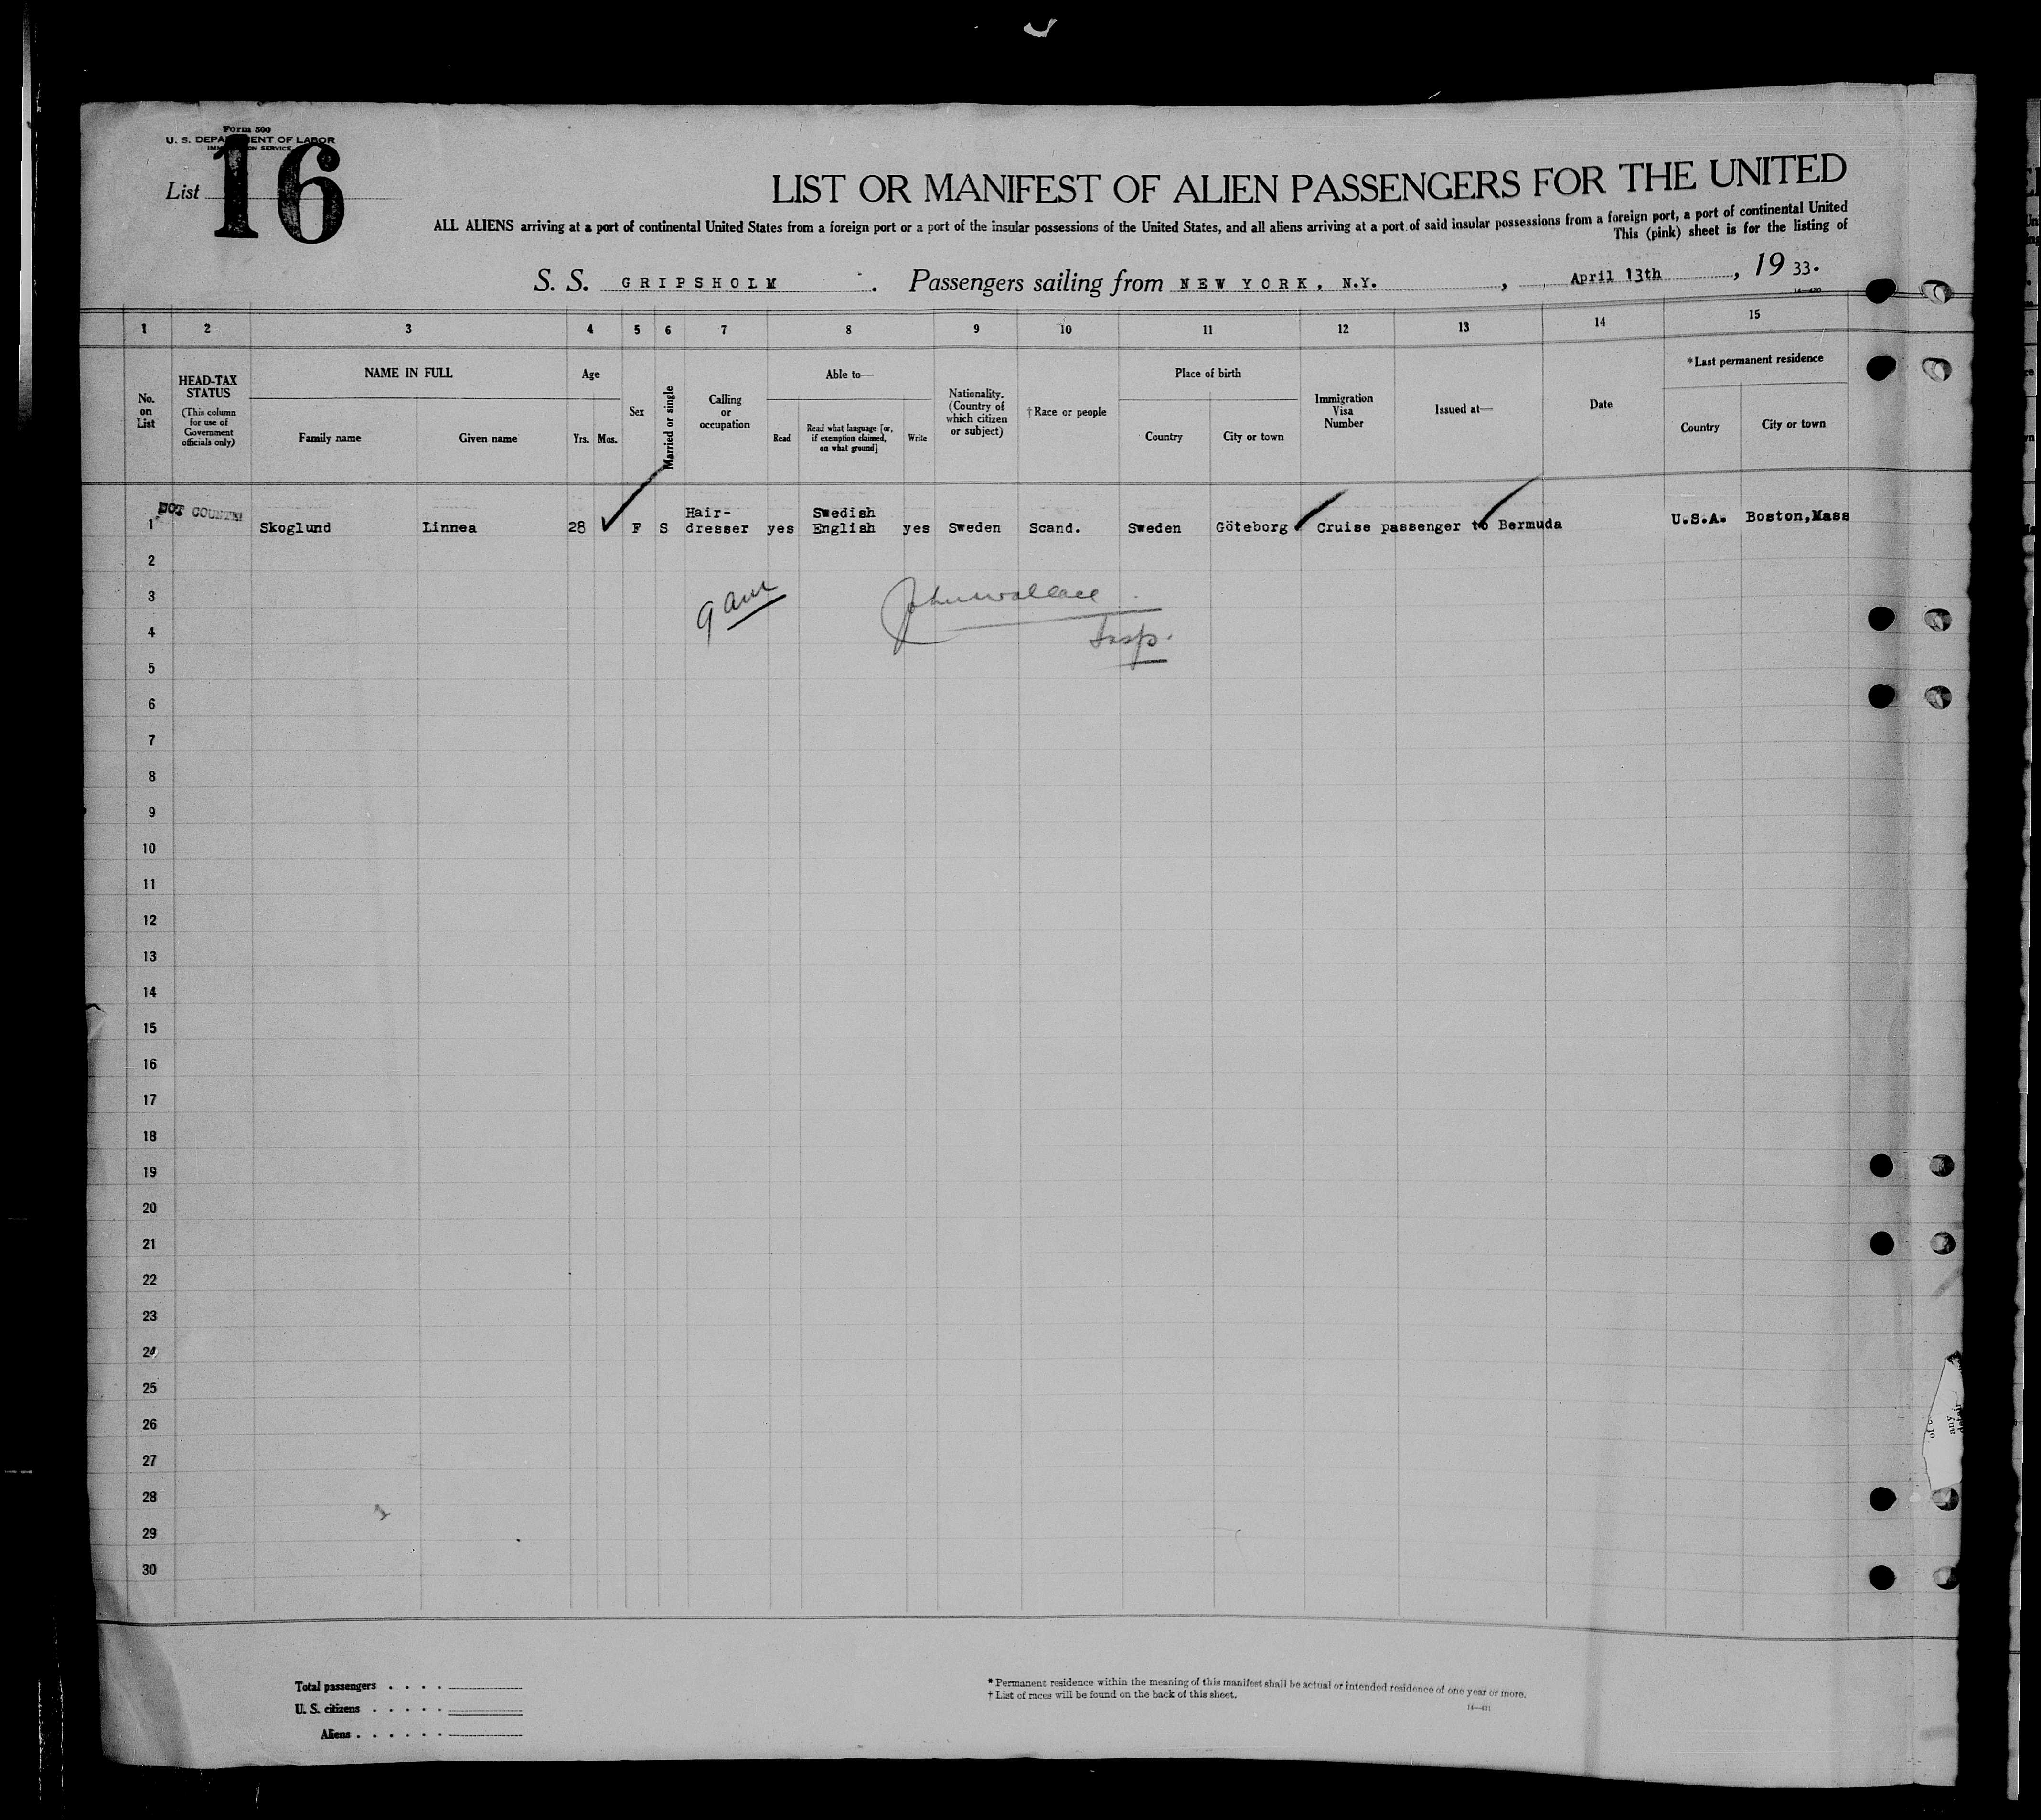 Form 500
U. S. DEPARTMENT OF LABOR
IMMIGRATION SERVICE
List 16
LIST OR MANIFEST OF ALIEN PASSENGERS FOR THE UNITED
ALL ALIENS arriving at a port of continental United States from a foreign port or a port of the insular possessions of the United States, and all aliens arriving at a port of said insular possessions from a foreign port, a port of continental United
This (pink) sheet is for the listing of
S. S. GRIPSHOLM . Passengers sailing from NEW YORK, N.Y. , April 13th , 19 33.
1 2 3 4 5 6 7 8 9 10 11 12 13 14 15
No. on List
HEAD-TAX STATUS (This column for use of Government officials only)
NAME IN FULL
Family name Given name
Age
Yrs. Mos.
Sex
Married or single
Calling or occupation
Able to—
Read Read what language [or, if exemption claimed, on what ground] Write
Nationality. (Country of which citizen or subject)
†Race or people
Place of birth
Country City or town
Immigration Visa Number
Issued at—
Date
*Last permanent residence
Country City or town
NOT COUNTED
1 Skoglund Linnea 28 F S Hair-dresser yes Swedish English yes Sweden Scand. Sweden Göteborg Cruise passenger to Bermuda U.S.A. Boston,Mass
2
3
John Wallace
4
Insp.
5
6
7
8
9
10
11
12
13
14
15
16
17
18
19
20
21
22
23
24
25
26
27
28
29
30
Total passengers . . . .
U. S. citizens . . . . .
Aliens . . . . . .
* Permanent residence within the meaning of this manifest shall be actual or intended residence of one year or more.
† List of races will be found on the back of this sheet.